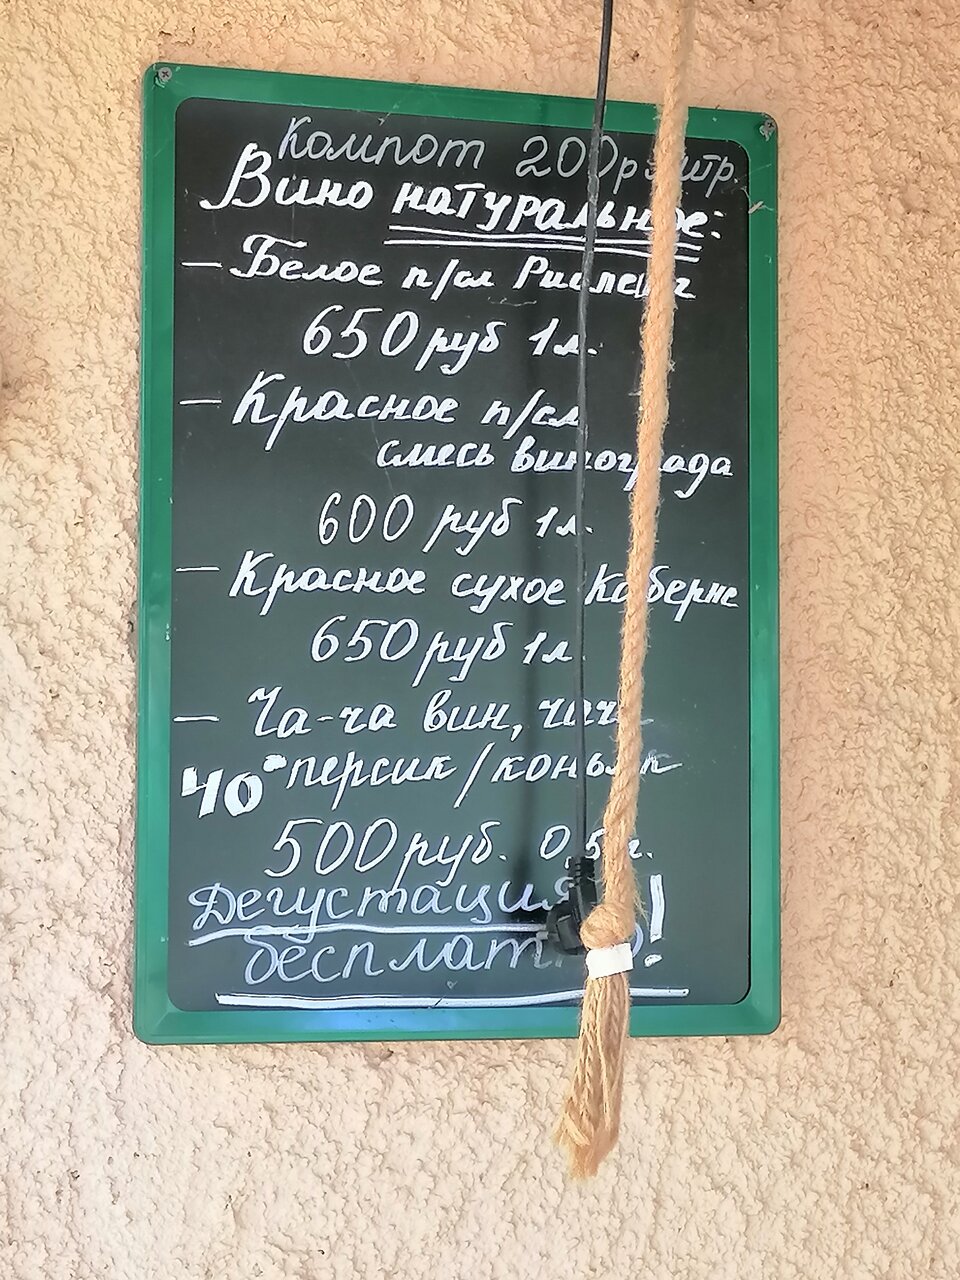 Компот 200р литр.
Вино натуральное:
— Белое п/сл Рислинг
650 руб 1л.
— Красное п/сл
смесь винограда
600 руб 1л.
— Красное сухое Каберне
650 руб 1л.
— Ча-ча вин, чача
40° персик/коньяк
500 руб. 0,5л.
Дегустация
бесплатно!